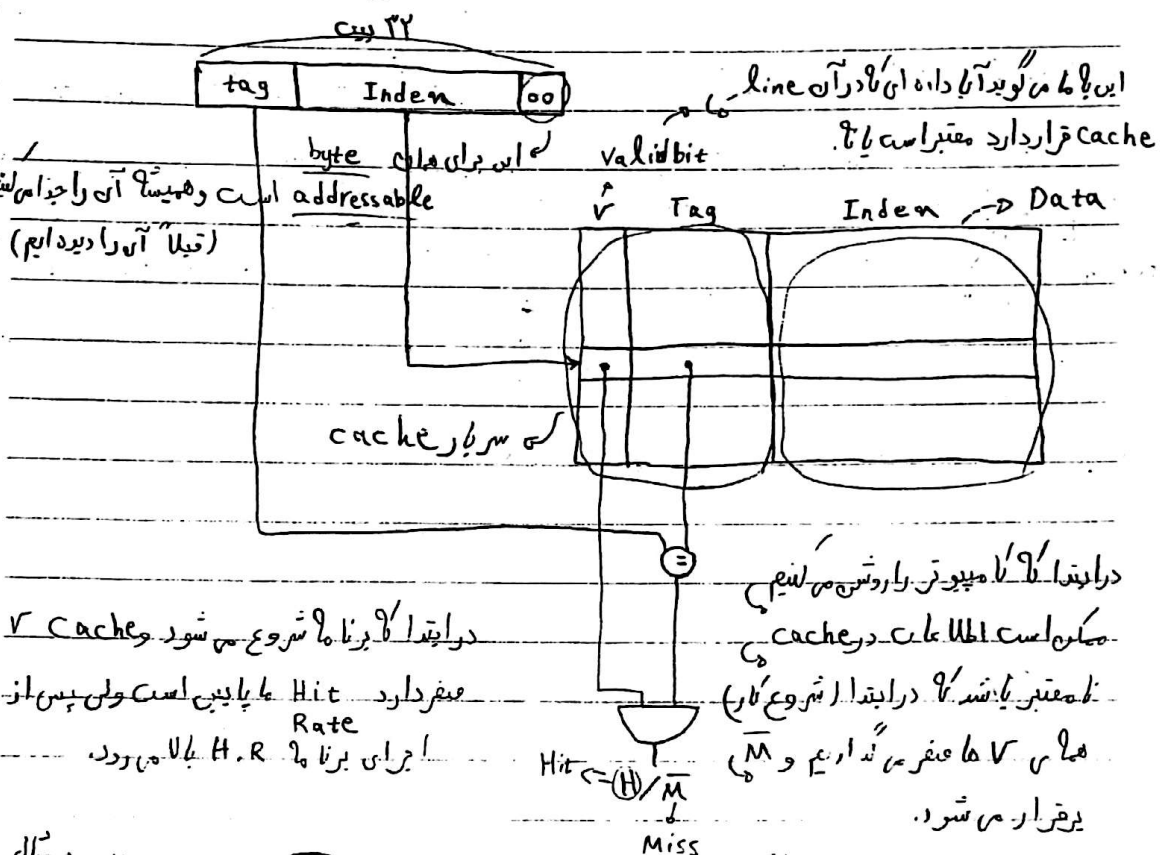 ۳۲ بیت
tag Index 00
این به ما می گوید آیا داده ای که در آن line
cache قرار دارد معتبر است یا نه.
این برای همان byte
addressable است و همیشه آن را جدا می کنیم
(قبلاً آن را دیده ایم)
validbit
V Tag Index Data
سربار cache
=
در ابتدا که کامپیوتر را روشن می کنیم
ممکن است اطلاعات در cache
نامعتبر باشد که در ابتدا (شروع کار)
همه ی V ها صفر می گذاریم و M̅
برقرار می شود.
در ابتدا که برنامه شروع می شود و V Cache
صفر دارد Hit Rate ما پایین است ولی پس از
اجرای برنامه H.R بالا می رود.
Hit H/M̅
Miss